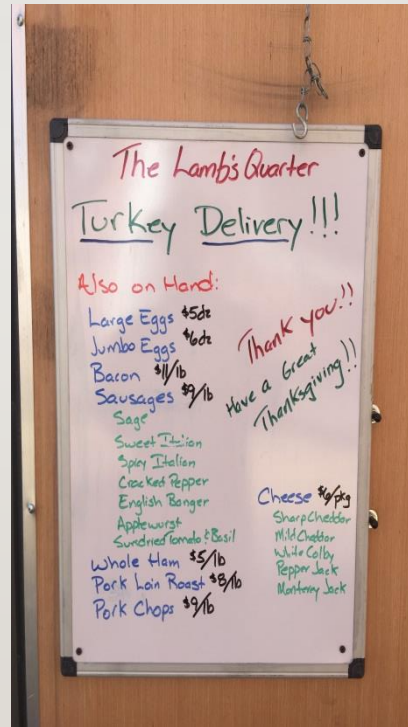 The Lamb's Quarter
Turkey Delivery!!!
Also on Hand:
Large Eggs $5dz
Jumbo Eggs $6dz
Bacon $11/lb
Sausages $9/lb
Sage
Sweet Italion
Spicy Italian
Cracked Pepper
English Banger
Applewurst
Sundried Tomato & Basil
Whole Ham $5/lb
Pork Loin Roast $8/lb
Pork Chops $9/lb
Thank you!!
Have a Great
Thanksgiving!!
Cheese $6/pkg
Sharp Cheddar
Mild Cheddar
White Colby
Pepper Jack
Monterey Jack